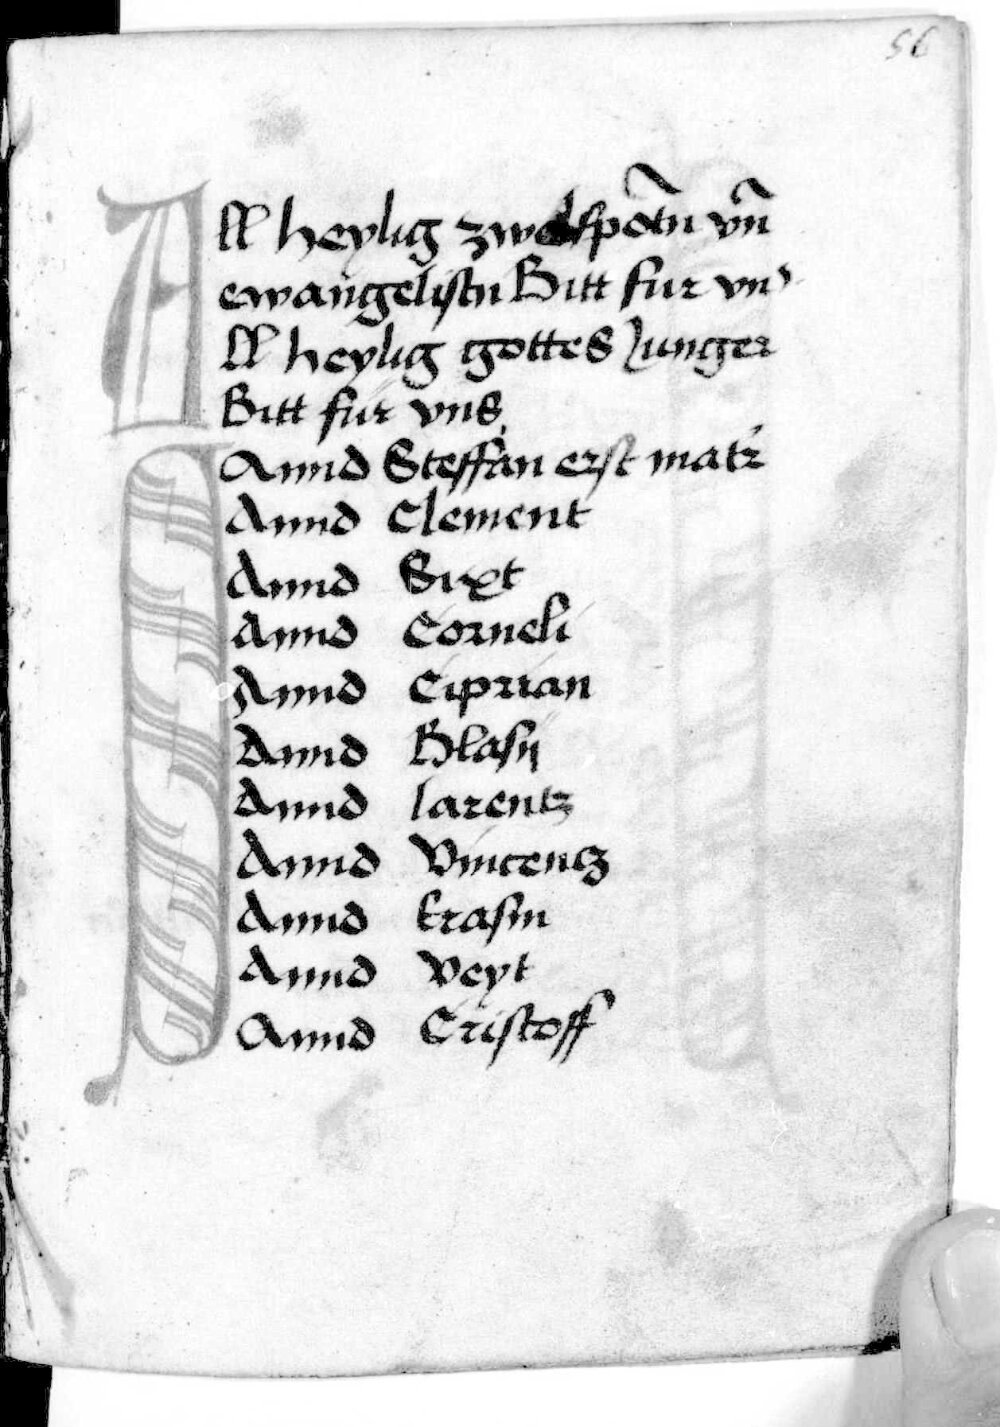 56
All heylig zwelfpotn̄ vn̄
ewangelistn Bitt fur vns
All heylig gottes Junger
Bitt für vns
Sannd Steffan erst matr̄
Sannd Clement
Sannd Sixt
Sannd Corneli
Sannd Ciprian
Sannd Blasij
Sannd larentz
Sannd Vincentz
Sannd Erasm
Sannd Veyt
Sannd Cristoff